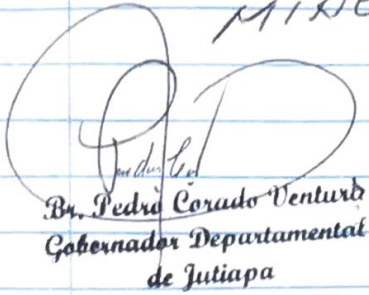 Br. Pedro Corado Ventura
Gobernador Departamental
de Jutiapa